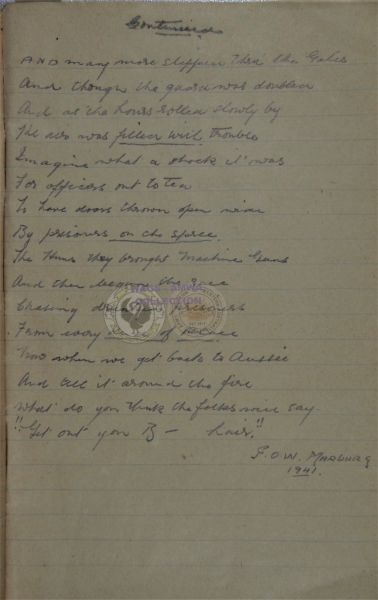 Continued
AND many more slipped thro the Gates
And though the guard was doubled
And as the hours rolled slowly by
The air was filled with troubles
Imagine what a shock it was
For officers out to tea
To have doors thrown open wide
By prisoners on the spree.
The Huns they brought Machine Guns
And then began the
Chasing drunken prisoners
From every of
Now when we get back to Aussie
And tell it around the fire
What do you think the folks will say
"Get out you B - liar."
P.O.W. MARBURG
1941.
WW2S - AMWA
COLLECTION